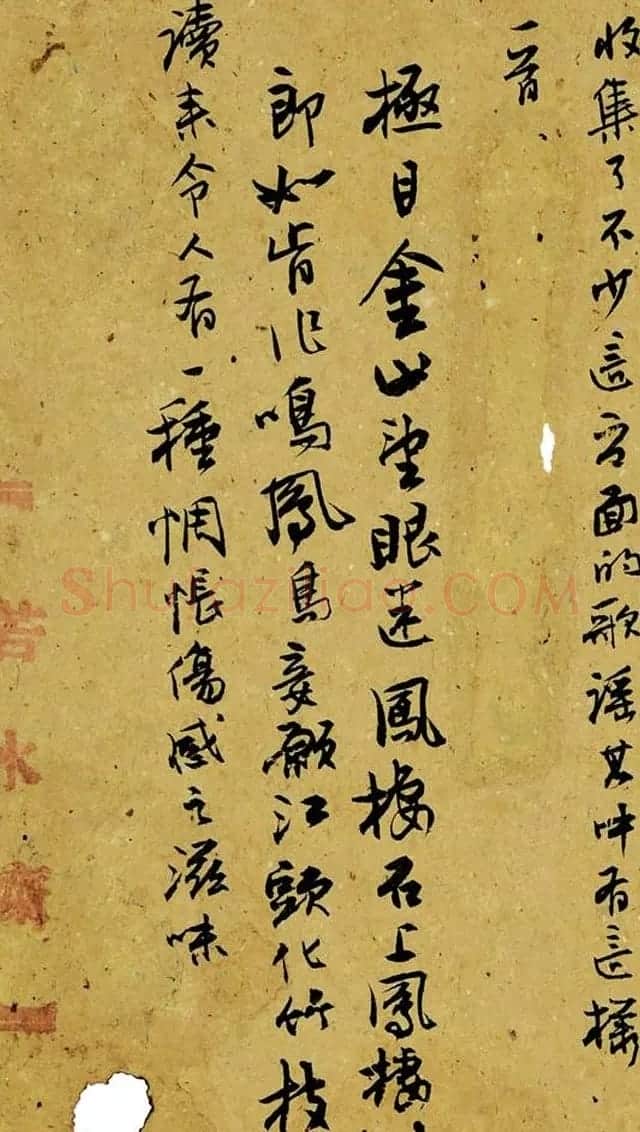 收集了不少這方面的歌谣其中有這樣
一首、
極目金山望眼迷鳳棲石上鳳棲
郎如肯作鳴鳳鳥妾願江頭化竹枝
讀来令人有一種惆悵傷感之滋味
Shufaziliao.COM
若水齋